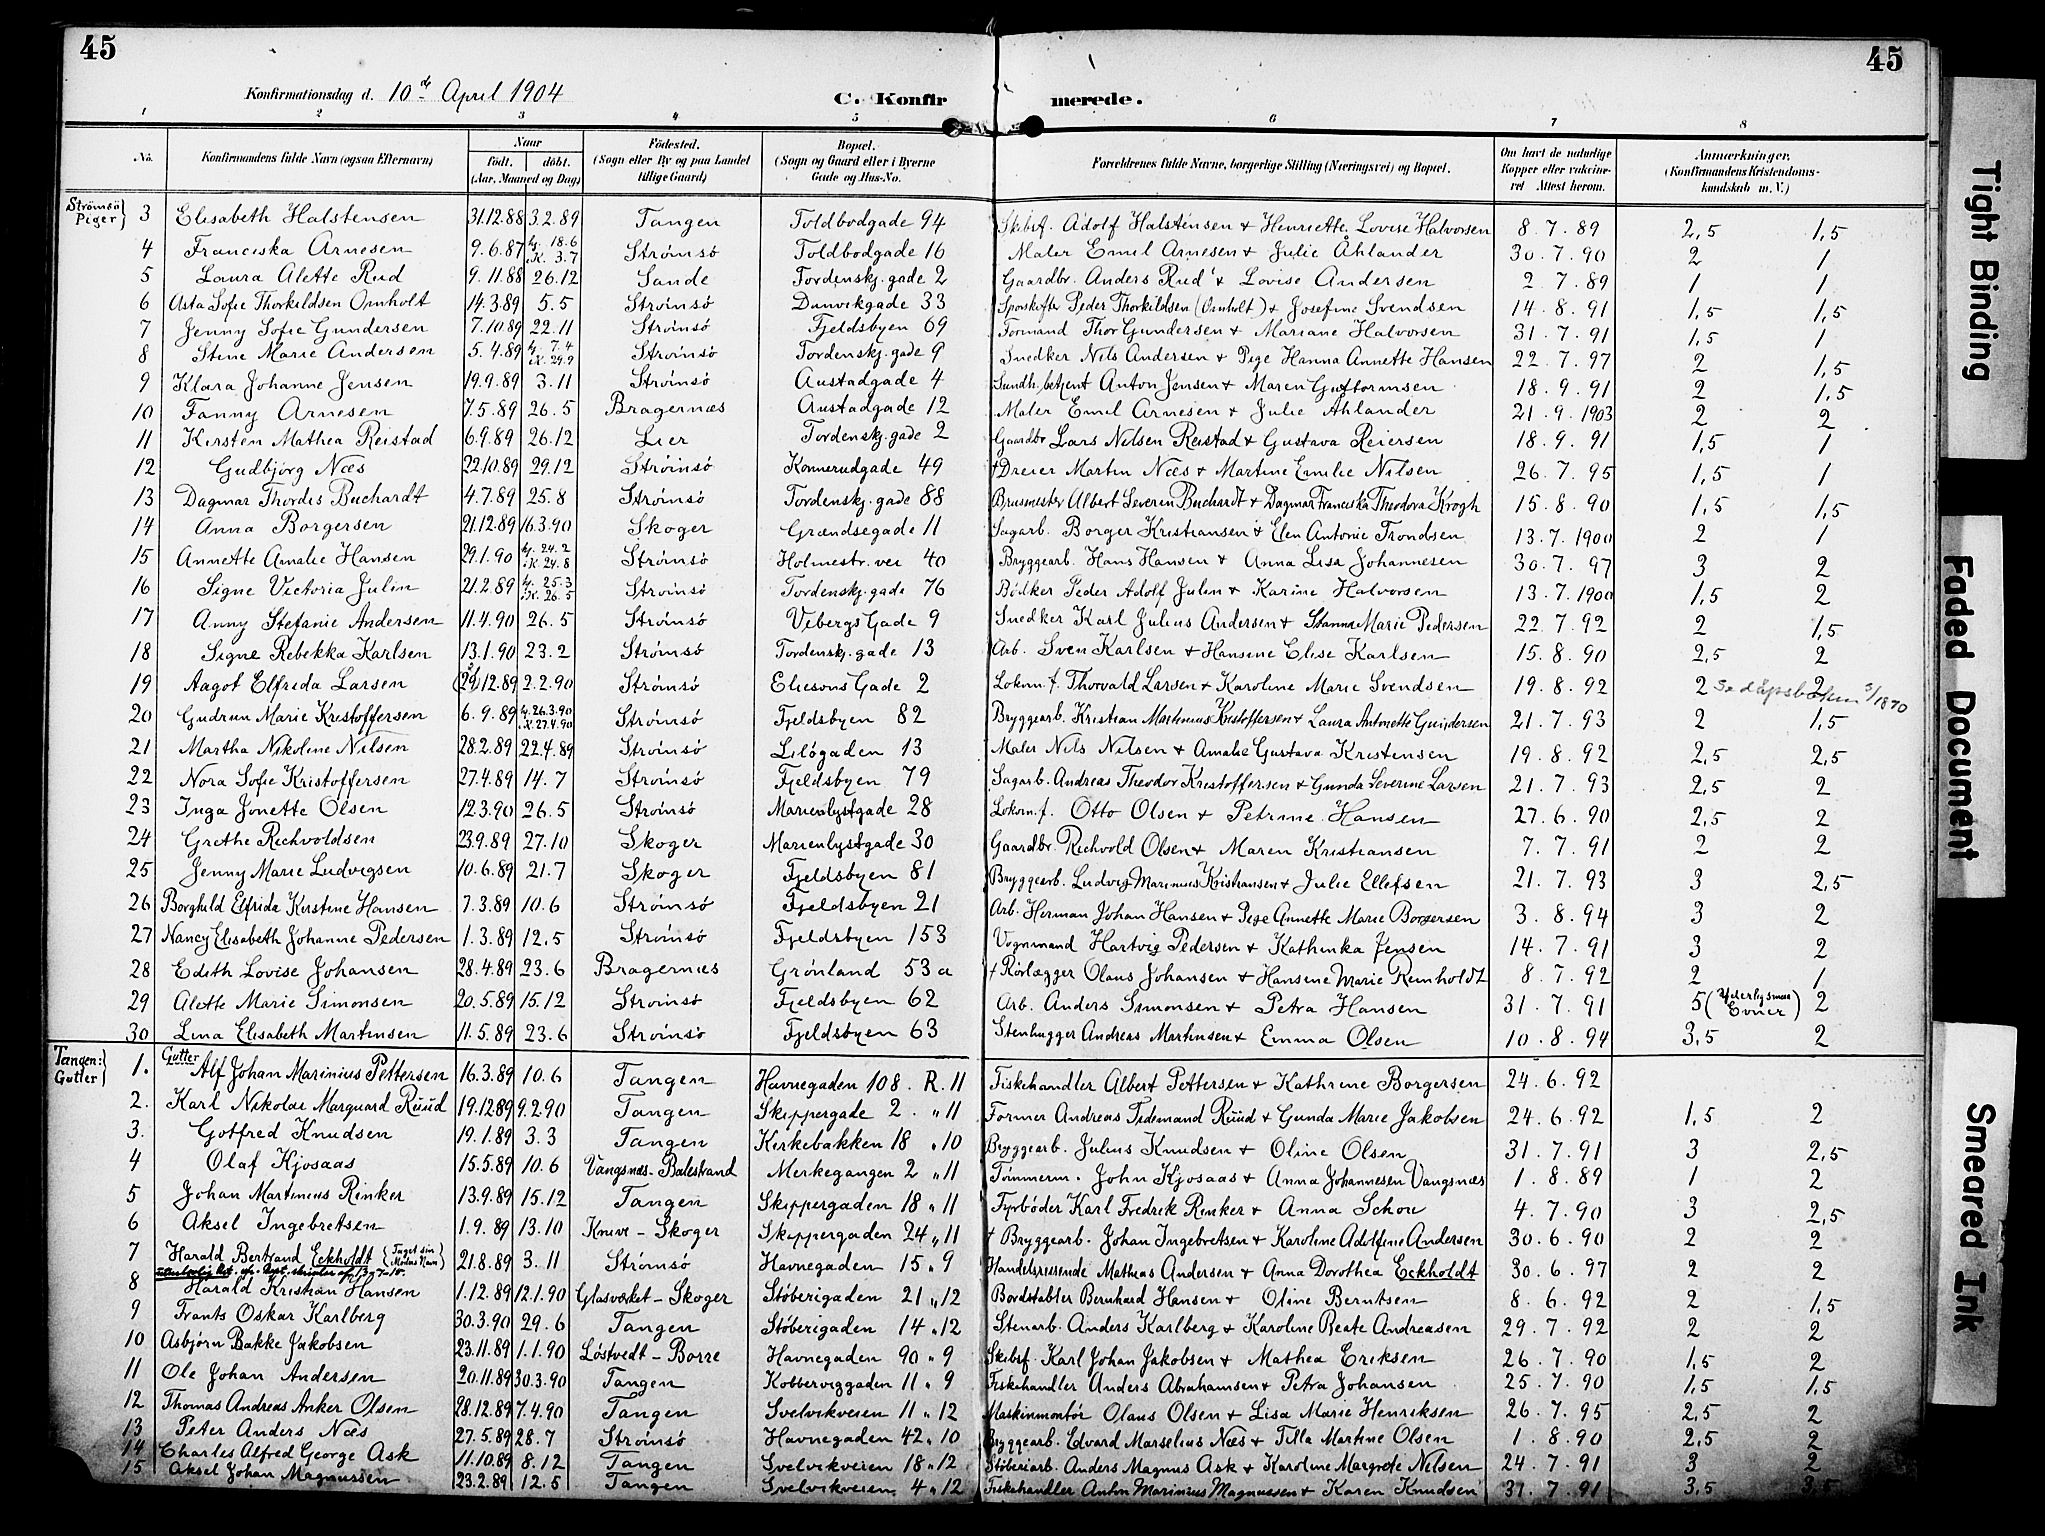 45
45
Konfirmationsdag d. 10de April 1904
C. Konfirmerede.
1 2 3 4 5 6 7 8
No. Konfirmandens fulde Navn (ogsaa Efternavn) Naar født. døbt. (Aar, Maaned og Dag) Fødested. (Sogn eller By og paa Landet tillige Gaard) Bopæl. (Sogn og Gaard eller i Byerne Gade og Hus-No. Forældrenes fulde Navne, borgerlige Stilling (Næringsvei) og Bopæl. Om havt de naturlige Kopper eller vakcineret Attest herom. Anmærkninger, (Konfirmandens Kristendomskundskab m. V.)
Strømsø Piger
3 Elisabeth Halstensen 31.12.88 3.2.89 Tangen Toldbodgade 94 Skibsf. Adolf Halstensen + Henriette Lovise Halvorsen 8.7.89 2,5 1,5
4 Franciska Arnesen 9.6.87 hj. 18.6 i K. 3.7 Strømsø Toldbodgade 16 Maler Emil Arnesen + Julie Åhlander 30.7.90 2 1
5 Laura Alette Rud 9.11.88 26.12 Sande Tordenskj. gade 2 Gaardbr. Anders Rud + Lovise Andersen 2.7.89 1 1
6 Asta Sofie Thorkildsen Omholt 14.3.89 5.5 Strømsø Danvikgade 33 Sporskifter Peder Thorkildsen (Omholt) + Josefine Svendsen 14.8.91 1,5 1,5
7 Jenny Sofie Gundersen 7.10.89 22.11 Strømsø Fjeldsbyen 69 Formand Thor Gundersen + Mariane Halvorsen 31.7.91 1,5 1
8 Stine Marie Andersen 5.4.89 hj. 7.4 i K. 29.9 Strømsø Tordenskj. gade 9 Snedker Nils Andersen + Pige Hanna Annette Hansen 22.7.97 2 1,5
9 Klara Johanne Jensen 19.9.89 3.11 Strømsø Austadgade 4 Sundh. betjent Anton Jensen + Maren Guttormsen 18.9.91 2 1,5
10 Fanny Arnesen 7.5.89 26.5 Bragernæs Austadgade 12 Maler Emil Arnesen + Julie Åhlander 21.9.1903 2 2
11 Kirsten Mathea Reistad 6.9.89 26.12 Lier Tordenskj. gade 2 Gaardbr Lars Nilsen Reistad + Gustava Reiersen 18.9.91 1,5 1
12 Gudbjørg Næs 22.10.89 29.12 Strømsø Konnerudgade 49 + Dreier Martin Næs + Martine Emilie Nilsen 26.7.95 1,5 1
13 Dagmar Thordis Buchardt 4.7.89 25.8 Strømsø Tordenskj. gade 88 Brusmester Albert Severin Buchardt + Dagmar Franciska Theodora Krogh 15.8.90 1,5 1,5
14 Anna Borgersen 21.12.89 16.3.90 Skoger Grændsegade 11 Sagarb. Borger Kristiansen + Elen Antonie Trondsen 13.7.1900 2 1
15 Annette Amalie Hansen 29.1.90 hj. 24.2 i K 24.8 Strømsø Holmestr. vei 40 Bryggearb. Hans Hansen + Anna Lisa Johannesen 30.7.97 3 2
16 Signe Victoria Julin 21.2.89 hj. 25.3 i K. 26.5 Strømsø Tordenskj. gade 76 Bødker Peder Adolf Julin + Karine Halvorsen 13.7.1900 1,5 2
17 Anny Stefanie Andersen 11.4.90 26.5 Strømsø Vebergs Gade 9 Snedker Karl Julius Andersen + Hanna Marie Pedersen 22.7.92 2 1,5
18 Signe Rebekka Karlsen 13.1.90 23.2 Strømsø Tordenskj. gade 13 Arb. Sven Karlsen + Hansine Elise Karlsen 15.8.90 2,5 2
19 Aagot Elfrida Larsen 29.12.89 2.2.90 Strømsø Eliesons Gade 2 Lokom.f. Thorvald Larsen + Karoline Marie Svendsen 19.8.92 2 2
20 Gudrun Marie Kristoffersen 6.9.89 hj. 26.3.90 i K. 27.4.90 Strømsø Fjeldsbyen 82 Bryggearb. Kristian Martinius Kristoffersen + Laura Antonette Gundersen 21.7.93 2 1,5
21 Martha Nikoline Nilsen 28.2.89 22.4.89 Strømsø Liløgaden 13 Maler Nils Nilsen + Amalie Gustava Kristensen 19.8.92 2,5 2,5
22 Nora Sofie Kristoffersen 27.4.89 14.7 Strømsø Fjeldsbyen 79 Sagarb. Andreas Theodor Kristoffersen + Gunda Severine Larsen 21.7.93 2,5 2
23 Inga Jonette Olsen 12.3.90 26.5 Strømsø Marienlystgade 28 Lokom.f. Otto Olsen + Petrine Hansen 27.6.90 2,5 2
24 Grethe Richvoldsen 23.9.89 27.10 Skoger Marienlystgade 30 Gaardbr Richvold Olsen + Maren Kristiansen 7.7.91 2 2
25 Jenny Marie Ludvigsen 10.6.89 21.7 Skoger Fjeldsbyen 81 Bryggearb. Ludvig Marinius Kristiansen + Julie Ellefsen 21.7.93 3 2,5
26 Borghild Elfrida Kirstine Hansen 7.3.89 10.6 Strømsø Fjeldsbyen 21 Arb. Herman Johan Hansen + Pige Annette Marie Borgersen 3.8.94 3 2
27 Nancy Elisabeth Johanne Pedersen 1.3.89 12.5 Strømsø Fjeldsbyen 153 Vognmand Hartvig Pedersen + Kathinka Jensen 14.7.91 3 2
28 Edith Lovise Johansen 28.4.89 23.6 Bragernæs Grønland 53 a + Rørlægger Olaus Johansen + Hansine Marie Reinholdt 8.7.92 2 1
29 Alette Marie Simonsen 20.5.89 15.12 Strømsø Fjeldsbyen 62 Arb. Anders Simonsen + Petra Hansen 31.7.91 5 (Yderligsmaa Evner) 2
30 Lina Elisabeth Martinsen 11.5.89 23.6 Strømsø Fjeldsbyen 63 Stenhugger Andreas Martinsen + Emma Olsen 10.8.94 3,5 2
Tangen: Gutter
Gutter
1. Alf Johan Marinius Pettersen 16.3.89 10.6 Tangen Havnegaden 108. R. 11 Fiskehandler Albert Pettersen + Kathrine Borgersen 24.6.92
2. Karl Nikolai Marquard Ruud 19.12.89 9.2.90 Tangen Skippergade 2. " 11 Former Andreas Tidemand Ruud + Gunda Marie Jakobsen 24.6.92 1,5 2
3. Gotfred Knudsen 19.1.89 3.3 Tangen Kirkebakken 18 " 10 Bryggearb. Julius Knudsen + Oline Olsen 31.7.91 3 2,5
4 Olaf Kjosaas 15.5.89 10.6 Vangsnæs-Balestrand Merkegangen 2 " 11 Tømmerm. John Kjosaas + Anna Johannesen Vangsnæs 1.8.89 1 2
5 Johan Martinius Rinker 13.9.89 15.12 Tangen Skippergaden 18 " 11 Fyrbøder Karl Fredrik Rinker + Anna Schou 4.7.90 3 2,5
6 Aksel Ingebretsen 1.9.89 13.10 Knive - Skoger Skippergaden 24 " 11 + Bryggearb. Johan Ingebretsen + Karoline Adolfine Andersen 30.6.90 2 2
7 Harald Bertrand Eckholdt (Taget sin Moders Navn) 21.8.89 3.11 Strømsø Havnegaden 15 " 9 Handelsreisende Mathias Andersen + Anna Dorothea Eckholdt 30.6.97 2 2
8 Harald Kristian Hansen 1.12.89 12.1.90 Glasværket - Skoger Støberigaden 21 " 12 Bordstabler Bernhard Hansen + Oline Berntsen 8.6.92 2 1,5
9 Frants Oskar Karlberg 30.3.90 29.6 Tangen Støberigaden 14 " 12 Stenarb. Anders Karlberg + Karoline Beate Andreasen 29.7.92 2 2
10 Asbjørn Bakke Jakobsen 23.11.89 1.1.90 Løstvedt - Borre Havnegaden 90 " 9 Skibsf. Karl Johan Jakobsen + Mathea Eriksen 26.7.90 1,5 2
11 Ole Johan Andersen 20.11.89 30.3.90 Tangen Kobberviggaden 11 " 9 Fiskehandler Anders Abrahamsen + Petra Johansen 25.7.90 1,5 1,5
12 Thomas Andreas Anker Olsen 28.12.89 7.4.90 Tangen Svelvikveien 11 " 12 Maskinmontør Olaus Olsen + Lisa Marie Henriksen 26.7.95 2,5 2
13 Peter Anders Næs 27.5.89 28.7 Strømsø Havnegaden 42 " 10 Bryggearb. Edvard Marselius Næs + Tilla Martine Olsen 1.8.90 2,5 2
14 Charles Alfred George Ask 11.10.89 8.12 Tangen Svelvikveien 18 " 12 Støberiarb. Anders Magnus Ask + Karoline Margrete Nilsen 24.7.91 3 2
15 Aksel Johan Magnussen 23.2.89 12.5 Tangen Svelvikveien 4 " 12 Fiskehandler Anton Marinius Magnussen + Karen Knudsen 31.7.91 3,5 3,5
Tight Binding
Faded Document
Smeared Ink